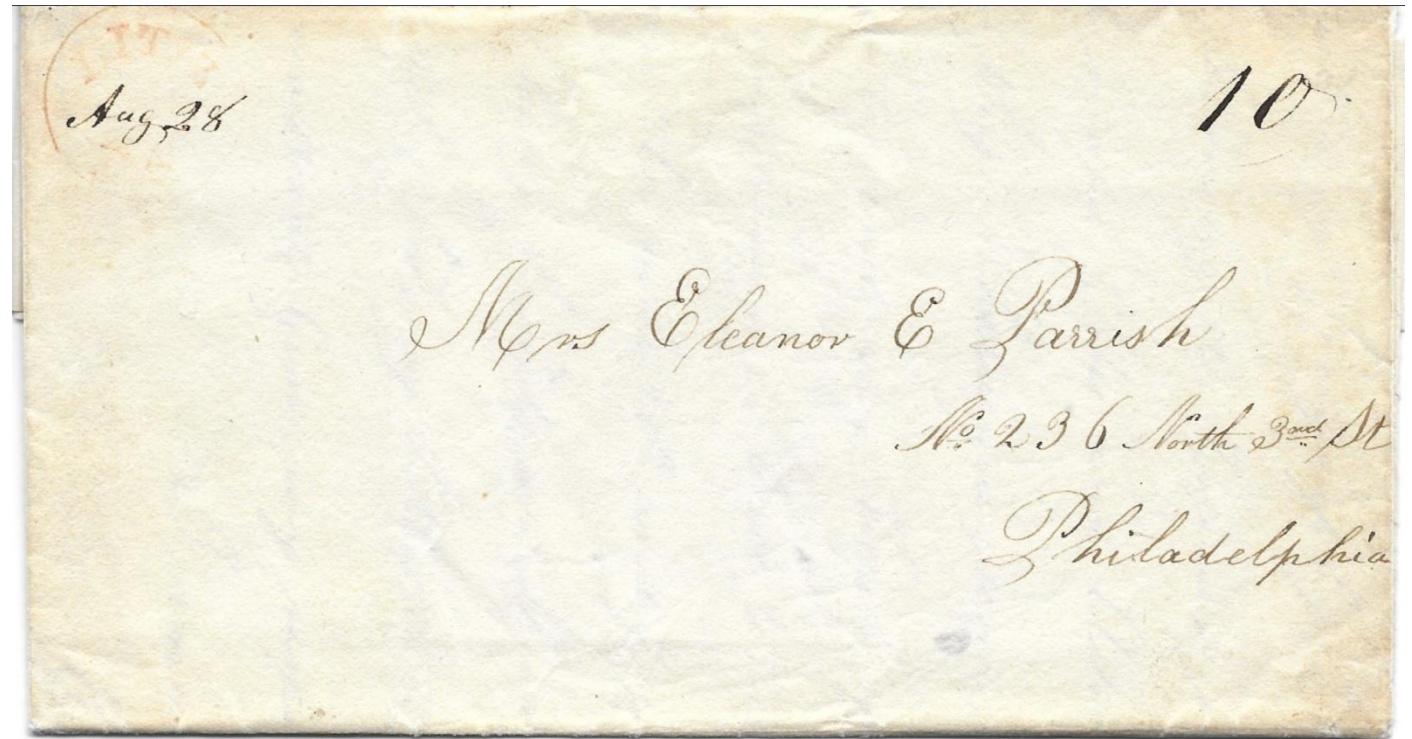 LITIZ
Aug 28
10
Mrs Eleanor E Parrish
No. 236 North 3nd St
Philadelphia